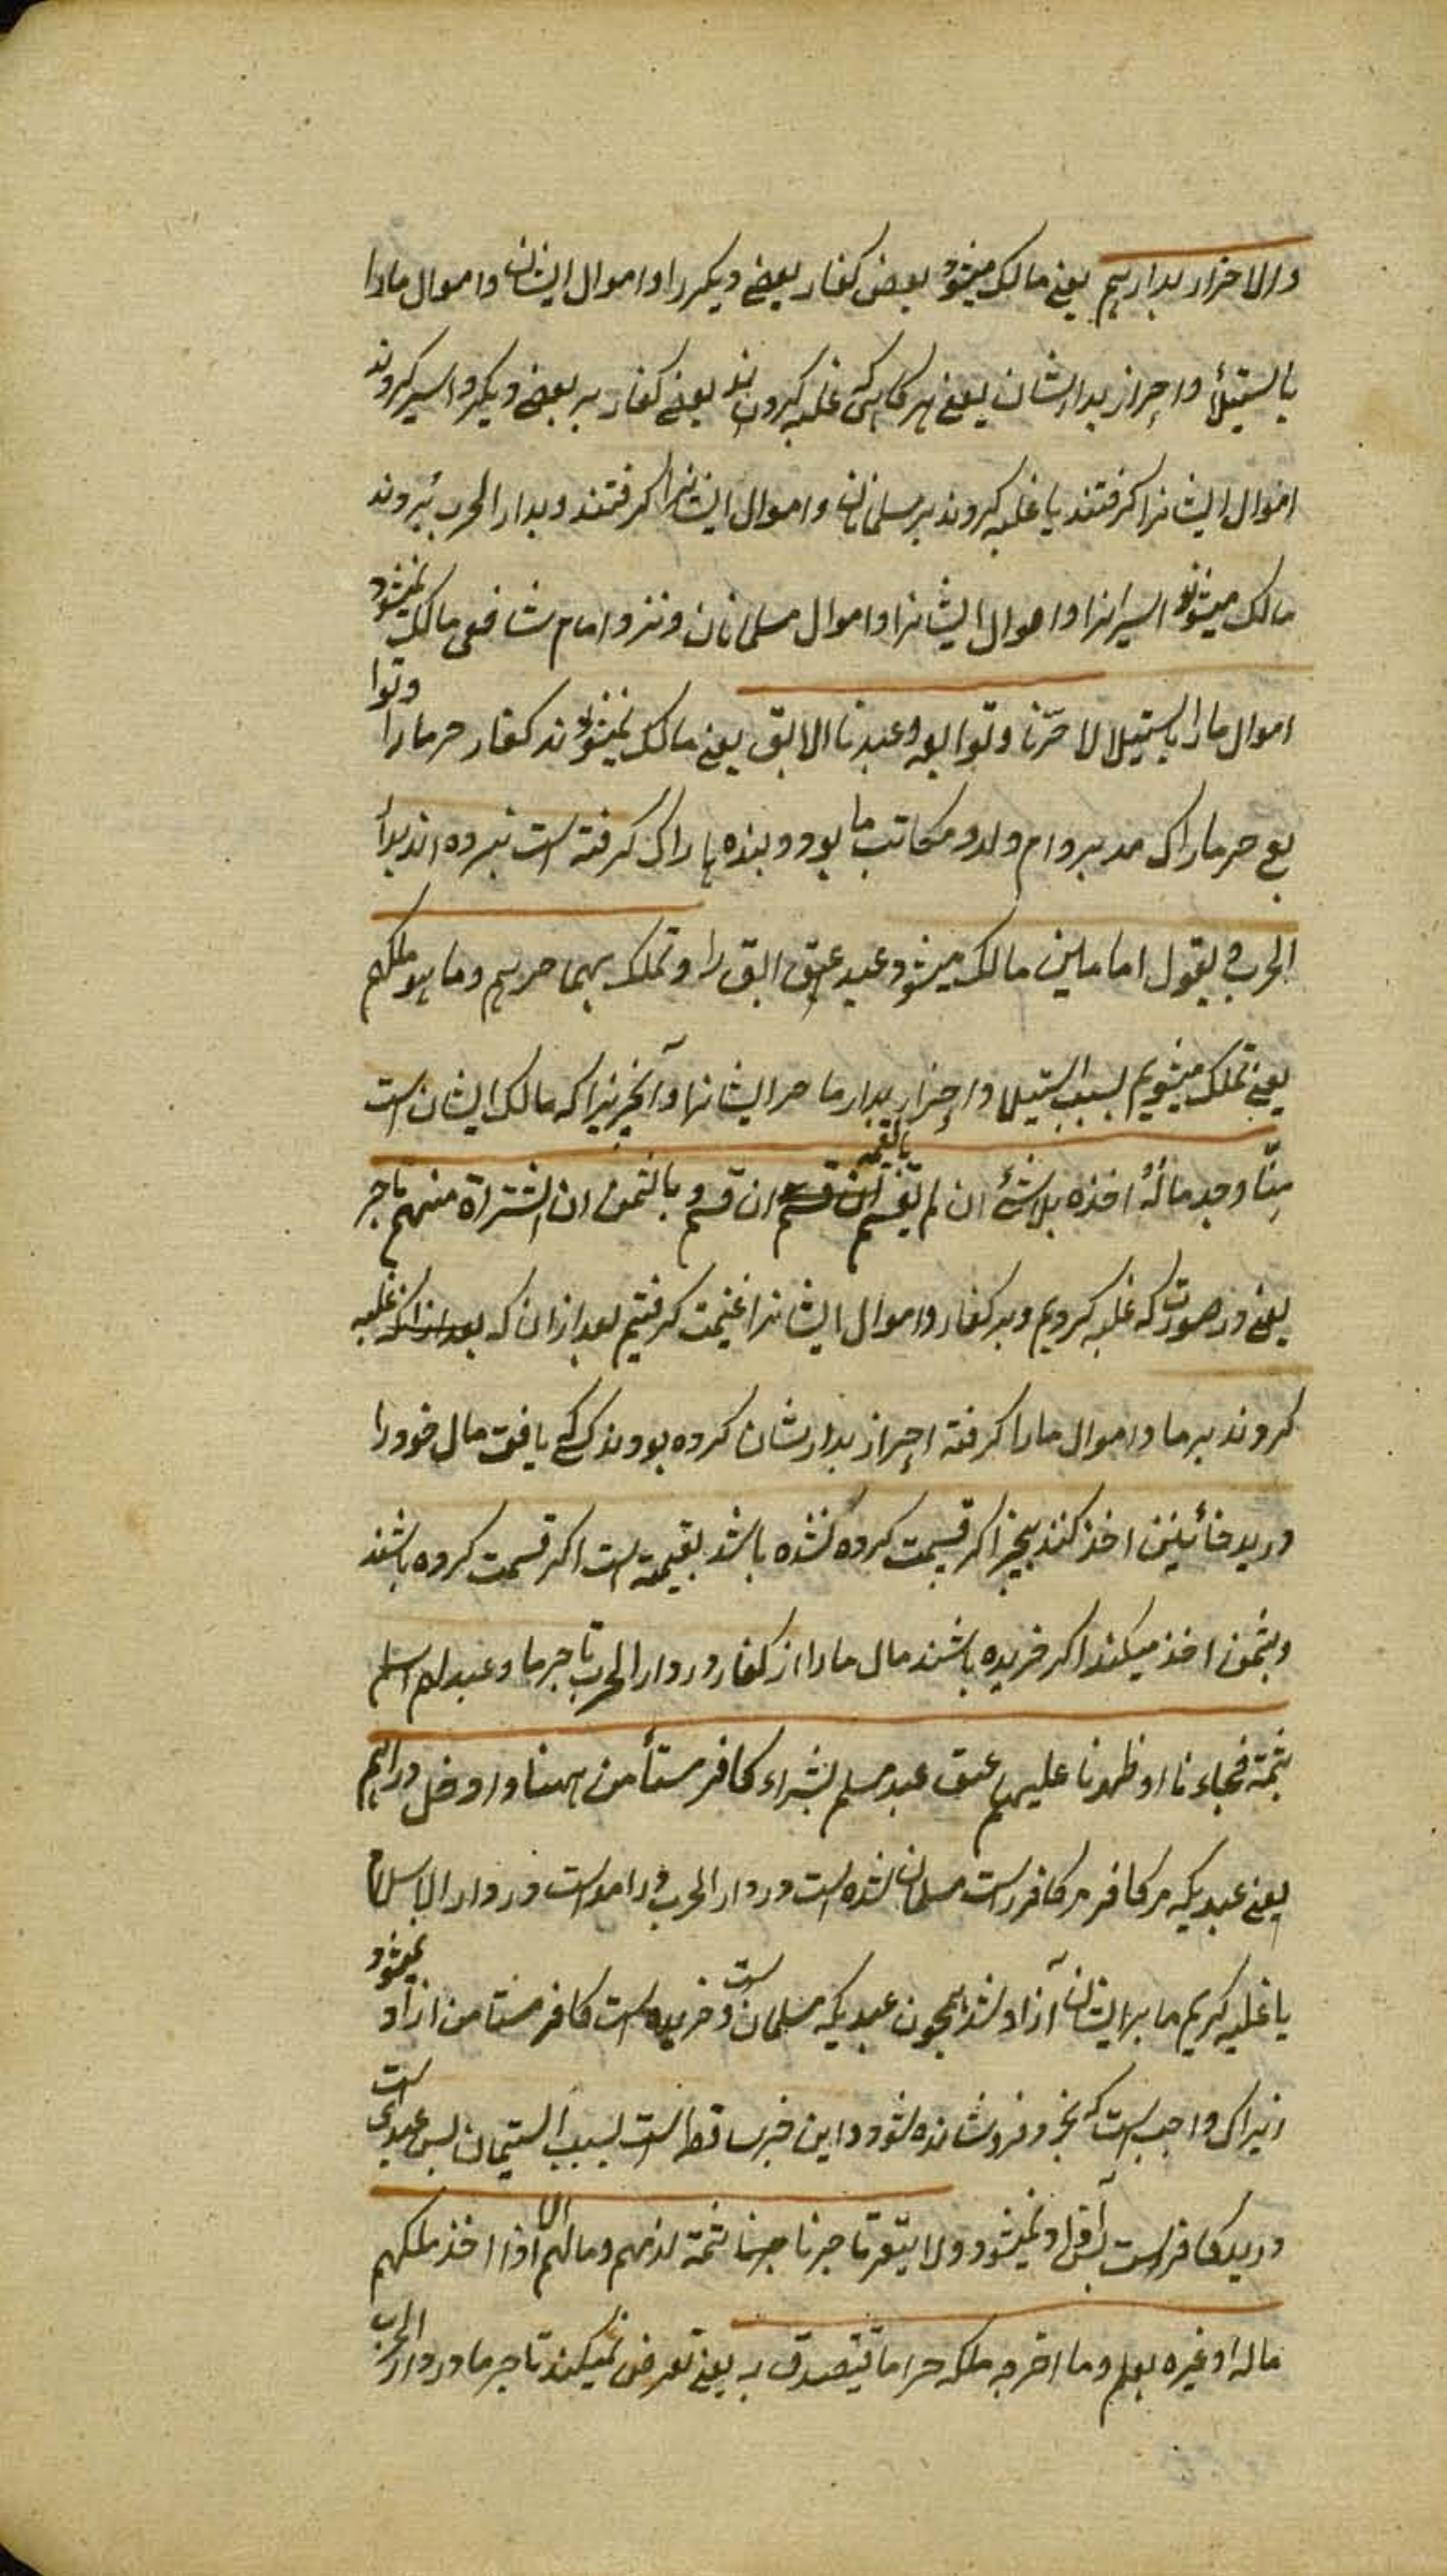 والاحراز بدارهم یعنی مالک میشود بعض کفار بعضی دیکر را و اموال ایشان و اموال ما را
باستیلأ و احراز بدارشان یعنی هرکاهی که غلبه کردند بعضی کفار بر بعضی دیکر و اسیر کردند
اموال ایشانرا کرفتند یا غلبه کردند بر مسلمانان و اموال ایشانرا کرفتند و بدار الحرب بردند
مالک میشوند اسیرانرا و اموال ایشانرا و اموال مسلمانان و نزد امام شافعی مالک نمیشود
اموال ما را باستیلا لا حرّنا و توابعه و عبدنا الابق یعنی مالک نمیشوند کفار حر ما را و توا
بع حر ما را که مدبر و ام ولد و مکاتب ما بود و بنده ما را که کرفته است نبرده اند بدا
الحرب و بقول امامین مالک میشود عبد ابق را و نملک بهما حرهم و ما هو ملکهم
یعنی تملک میشویم بسبب استیلا و احراز بدار ما حر ایشانرا و آنچیزیرا که مالک ایشان است
منّا وجد مالهٔ اخذه بلا شئ ان لم یقسم بالقیمه ان قسم و بالثمن ان اشتراه منهم تاجر
یعنی در صورت که غلبه کردیم و بر کفار و اموال ایشانرا غنیمت کرفتیم بعد از ان که بعد از انکه غلبه
کردند بر ما و اموال ما را کرفته احراز بدارشان کرده بودند که کسی یافت مال خود را
در ید غانمین اخذ کنند بیچیز اکر قسمت کرده نشده باشد بقیمت است اکر قسمت کرده باشند
و بثمن اخذ میکند اکر خریده باشند مال ما را از کفار در دار الحرب تاجر ما و عبد لهم اسلم
ثمة فجاءنا او ظهرنا علیهم عتق عبد مسلم بشراء کافر مستأمن ههنا و ادخل دارهم
یعنی عبدیکه مر کافر مر کافر راست مسلمان شده است در دار الحرب و در اموست در دار الاسلام
یا غلبه کریم ما بر ایشان آزاد شد همچون عبدیکه مسلمان است و خریده است کافر مستامن ازاد میشود
زیراکه واجب است که بجز و فروشانده شود و این خبر ساقط است بسبب استیمان پس عبدی که است
در ید کافر است آقا او نمیشود و لا یتعر تاجرنا ثمة لدمهم و مالهم الا اذا اخذ ملکهم
ماله او غیره بعلمه و ما اخرجه ملکه حراما فیتصدق به یعنی تعرض نمیکند تاجر ما در دار الحرب